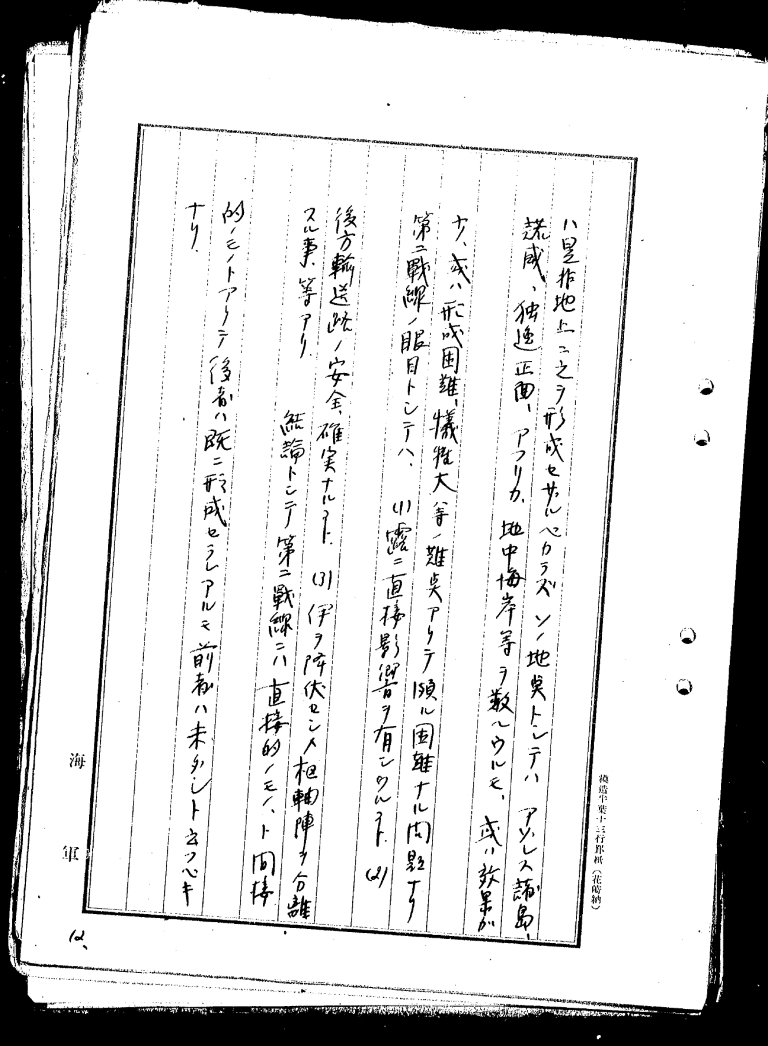 ハ是非地上ニ之ヲ形成セザルベカラズソノ地点トシテハアゾレス諸島、
諾威、独逸正面、アフリカ、地中海岸等ヲ数ヘウルモ、或ハ効果少
ナク、或ハ形成困難、犠牲大等ノ難点アリテ頗ル困難ナル問題ナリ
第二戦線ノ眼目トシテハ、(1)露ニ直接影響ヲ有シウルコト、(2)
後方輸送路ノ安全、確実ナルコト、(3)伊ヲ降伏セシメ枢軸陣ヲ分離
スル事、等アリ
結論トシテ第二戦線ニハ直接的ノモノト間接
的ノモノトアリテ後者ハ既ニ形成セラレアルモ前者ハ未ダシト云フベキ
ナリ.
海軍
12、